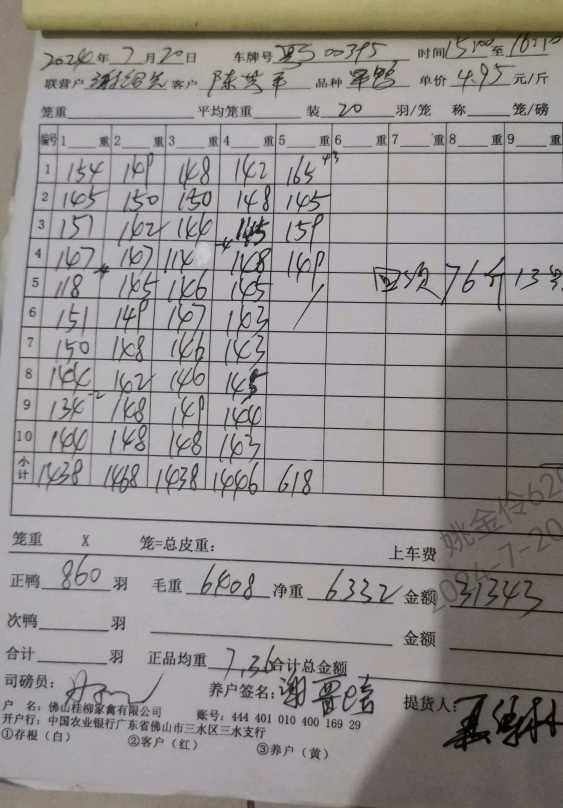 2024年7月20日 车牌号 粤 00395 时间15:00至16:10
联营户 客户 陈 品种 单价 4.95 元/斤
笼重 平均笼重 装 20 羽/笼 称 笼/磅
编号 1 重 2 重 3 重 4 重 5 重 6 重 7 重 8 重 9 重
1 154 149 148 142 165 +3
2 145 150 150 148 145
3 151 142 144 145 159
4 147 147 114 148 149
5 118 145 146 145 回 76斤 13
6 151 149 147 143
7 150 148 146 143
8 144 142 146 145
9 134 -2 148 149 144
10 144 148 148 143
小计 1438 1468 1438 1446 618
笼重 X 笼=总皮重: 上车费
正鸭 860 羽 毛重 6408 净重 6332 金额 31343
次鸭 羽 金额
合计 羽 正品均重 7.36 合计总金额
司磅员: 养户签名: 谢 提货人:
户 名: 佛山桂柳家禽有限公司 账号: 444 401 010 400 169 29
开户行: 中国农业银行广东省佛山市三水区三水支行
①存根(白) ②客户(红) ③养户(黄)
姚金伶62
2024-7-20